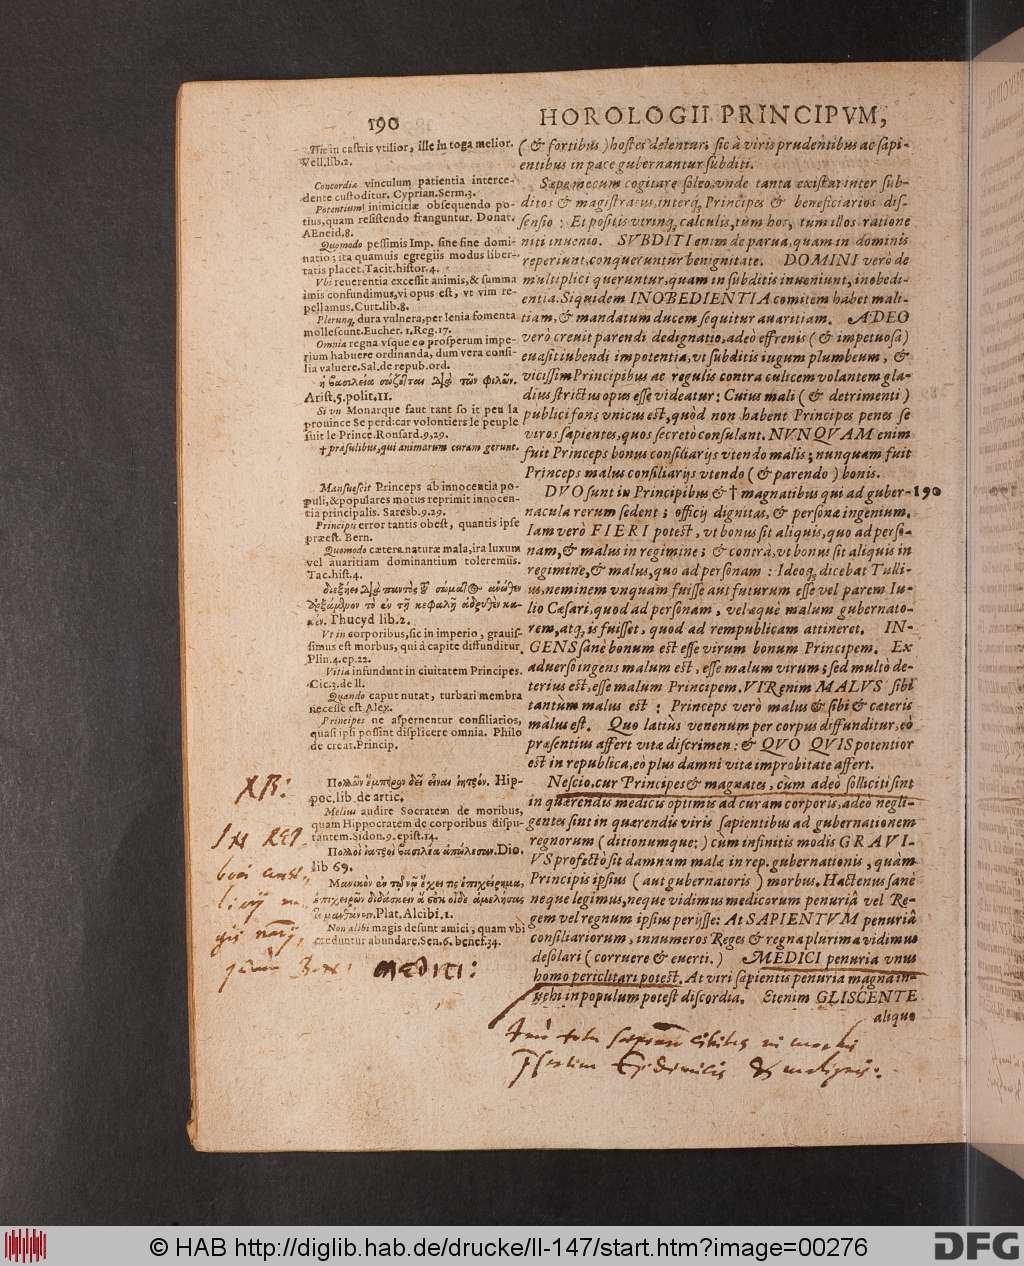 190
HOROLOGII PRINCIPVM,
Hic in castris vtilior, ille in toga melior.
Vell.lib.2.
Concordiæ vinculum patientia interce-
dente custoditur. Cyprian.Serm.3.
Potentium inimicitiæ obsequendo po-
tius,quam resistendo franguntur. Donat.
AEneid.8.
Quomodo pessimis Imp. sine fine domi-
natio; ita quamuis egregiis modus liber-
tatis placet.Tacit.histor.4.
Vbi reuerentia excessit animis,& summa
imis confundimus,vi opus est, vt vim re-
pellamus.Curt.lib.8.
Plerunq; dura vulnera,per lenia fomenta
mollescunt.Eucher. 1.Reg.17.
Omnia regna vsque eo prosperum impe-
rium habuere ordinanda, dum vera consi-
lia valuere.Sal.de repub.ord.
ἡ βασιλεία σώζεται διὰ τῶν φιλῶν.
Arist.5.polit.11.
Si vn Monarque faut tant so it peu la
prouince Se perd:car volontiers le peuple
suit le Prince.Ronsard.9,29.
† præsulibus,qui animarum curam gerunt.
Mansuescit Princeps ab innocentia po-
puli,& populares motus reprimit innocen-
tia principalis. Saresb.9.29.
Principis error tantis obest, quantis ipse
præest. Bern.
Quomodo cætera naturæ mala,ira luxum
vel auaritiam dominantium toleremus.
Tac.hist.4.
Thucyd lib.2.
Vt in corporibus,sic in imperio, grauis-
simus est morbus, qui à capite diffunditur.
Plin.4.ep.22.
Vitia infundunt in ciuitatem Principes.
Cic.3.de ll.
Quando caput nutat, turbari membra
necesse est.Alex.
Principes ne aspernentur consiliarios,
quasi ipsi possint displicere omnia. Philo
de creat.Princip.
Hip-
poc.lib de artic.
Melius audire Socratem de moribus,
quam Hippocratem de corporibus dispu-
tantem.Sidon.9.epist.14.
Πολλοὶ ἰατροὶ βασιλέα ἀπώλεσαν.Dio.
lib 69.
Plat.Alcibi.1.
Non alibi magis desunt amici, quam vbi
creduntur abundare.Sen.6.benef.34.
(& fortibus) hostes delentur: sic à viris prudentibus ac sapi-
entibus in pace gubernantur subditi.
Sæpe mecum cogitare soleo,vnde tanta existat inter sub-
ditos & magistratus,interq; Principes & beneficiarios dis-
sensio : Et positis vtrinq; calculis,tùm hos, tùm illos ratione
niti inuenio. SVBDITI enim de parua,quam in dominis
reperiunt,conqueruntur benignitate. DOMINI verò de
multiplici queruntur,quam in subditis inueniunt,inobedi-
entia.Siquidem INOBEDIENTIA comitem habet mali-
tiam,& mandatum ducem sequitur auaritiam. ADEO
verò creuit parendi dedignatio,adeò effrenis (& impetuosa)
euasit iubendi impotentia,vt subditis iugum plumbeum, &
vicissim Principibus ac regulis contra culicem volantem gla-
dius strictus opus esse videatur: Cuius mali (& detrimenti)
publici fons vnicus est,quòd non habent Principes penes se
viros sapientes,quos secretò consulant. NVNQVAM enim
fuit Princeps bonus consiliarijs vtendo malis; nunquam fuit
Princeps malus consiliarijs vtendo (& parendo) bonis.
DVO sunt in Principibus & † magnatibus qui ad guber-
190
nacula rerum sedent ; officij dignitas, & personæ ingenium.
Iam verò FIERI potest, vt bonus sit aliquis, quo ad perso-
nam,& malus in regimine ; & contrà,vt bonus sit aliquis in
regimine,& malus,quo ad personam : Ideoq; dicebat Tulli-
us,neminem vnquam fuisse aut futurum esse vel parem Iu-
lio Cæsari,quod ad personam, vel æquè malum gubernato-
rem,atq; is fuisset, quod ad rempublicam attineret. IN-
GENS sanè bonum est esse virum bonum Principem. Ex
aduerso ingens malum est, esse malum virum; sed multò de-
terius est,esse malum Principem.VIR enim MALVS sibi
tantùm malus est : Princeps verò malus & sibi & cæteris
malus est. Quo latiùs venenum per corpus diffunditur,eò
præsentius affert vitæ discrimen : & QVO QVIS potentior
est in republica,eò plus damni vitæ improbitate affert.
Nescio,cur Principes & magnates, cùm adeò solliciti sint
in quærendis medicis optimis ad curam corporis,adeo negli-
gentes sint in quærendis viris sapientibus ad gubernationem
regnorum (ditionumque:) cùm infinitis modis GRAVI-
VS profectò sit damnum malæ in rep. gubernationis, quàm
Principis ipsius (aut gubernatoris) morbus. Hactenus sanè
neque legimus,neque vidimus medicorum penuriâ vel Re-
gem vel regnum ipsius perijsse: At SAPIENTVM penuriâ
consiliariorum, innumeros Reges & regna plurima vidimus
desolari (corruere & euerti.) MEDICI penuria vnus
homo periclitari potest. At viri sapientis penuria magna in-
uehi in populum potest discordia. Etenim GLISCENTE
aliquo
© HAB http://diglib.hab.de/drucke/ll-147/start.htm?image=00276
DFG